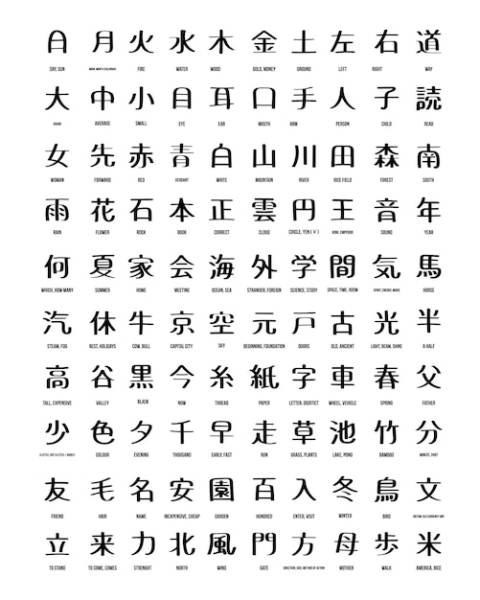 日 月 火 水 木 金 土 左 右 道
DAY, SUN FIRE WATER WOOD GOLD, MONEY GROUND LEFT RIGHT WAY
大 中 小 目 耳 口 手 人 子 読
AVERAGE SMALL EYE EAR MOUTH PERSON CHILD READ
女 先 赤 青 白 山 川 田 森 南
WOMAN FORWARD RED WHITE MOUNTAIN RIVER RICE FIELD FOREST SOUTH
雨 花 石 本 正 雲 円 王 音 年
RAIN FLOWER ROCK BOOK CORRECT CLOUD CIRCLE, YEN (¥) SOUND YEAR
何 夏 家 会 海 外 学 間 気 馬
WHICH, HOW MANY SUMMER HOME MEETING OCEAN, SEA STRANGER, FOREIGN SCIENCE, STUDY SPACE, TIME, ROOM HORSE
汽 休 牛 京 空 元 戸 古 光 半
STEAM, FOG REST, HOLIDAYS COW, BULL CAPITAL CITY SKY BEGINNING, FOUNDATION DOORS OLD, ANCIENT LIGHT, BEAM, SHINE A HALF
高 谷 黒 今 糸 紙 字 車 春 父
TALL, EXPENSIVE VALLEY BLACK NOW THREAD PAPER WHEEL, VEHICLE SPRING FATHER
少 色 夕 千 早 走 草 池 竹 分
COLOUR EVENING THOUSAND EARLY, FAST RUN GRASS, PLANTS LAKE, POND BAMBOO MINUTE, PART
友 毛 名 安 園 百 入 冬 鳥 文
FRIEND HAIR NAME INEXPENSIVE, CHEAP GARDEN HUNDRED ENTER, VISIT WINTER BIRD
立 来 力 北 風 門 方 母 歩 米
TO STAND TO COME, COMES STRENGHT NORTH WIND GATE MOTHER WALK AMERICA, RICE